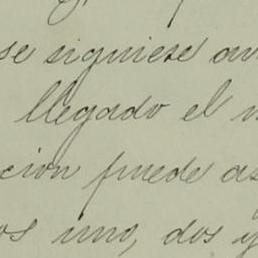 se siguiese au
llegado el
cion puede as
os uno, dos y